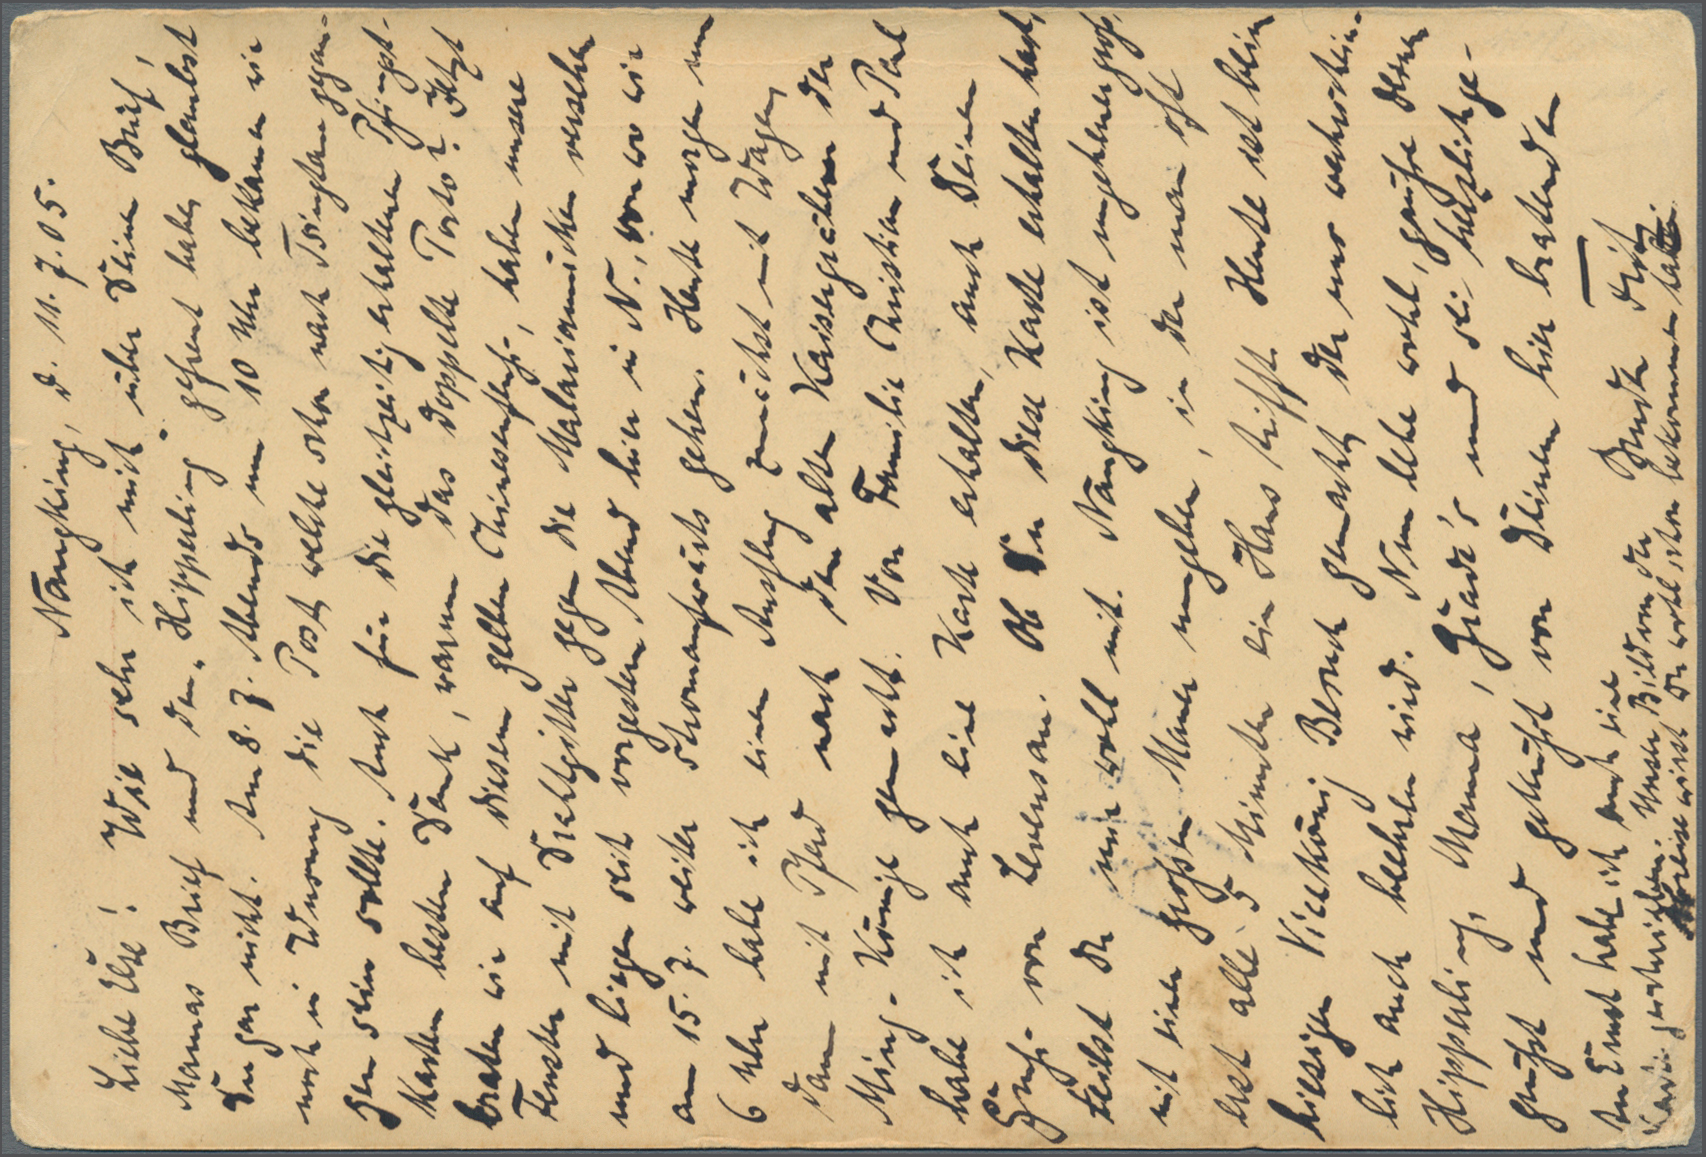 Nangking, d. 11. 7. 05.
Liebe Ilse! Wie sehr ich mich über Deinen Brief,
Mamas Brief und den „Hipperling" gefreut habe, glaubst
Du gar nicht. Am 8. 7. Abends um 10 Uhr bekamen wir
noch in Wusung die Post, welche schon nach Tsingtau gegan-
gen sein sollte. Auch für die gleichzeitig erhaltenen Pfingst-
karten besten Dank, warum das doppelte Porto? Jetzt
braten wir auf diesem gelben Chinesenfluß, haben unsere
Fenster mit Drahtgitter gegen die Malariamücken versehen
und liegen seit vorgestern Abend hier in N., von wo wir
am 15. 7. weiter stromaufwärts gehen. Heute morgen um
6 Uhr habe ich einen Ausflug zunächst mit Wagen,
dann mit Pferd nach den alten Kaisergräbern der
Ming-Könige gemacht. Von Familie Christian und Paul
habe ich auch eine Karte erhalten, auch Deinen
Gruß von Levensau. Ob Du diese Karte erhalten hast,
teilst Du mir wohl mit. Nangking ist ungeheuer groß,
mit einer großen Mauer umgeben, in der man oft
erst alle 5 Minuten ein Haus trifft. Heute ist beim
hiesigen Vicekönig Besuch gemacht, der uns wahrschein-
lich auch beehren wird. Nun lebe wohl, grüße Deinen
Hipperling, Mama, und sei herzlich ge-
grüßt und geküßt von Deinem hier bratenden
Bruder
An Ernst habe ich auch eine
Karte geschrieben. Unser Bild von der
Ausreise wirst Du wohl schon bekommen haben.